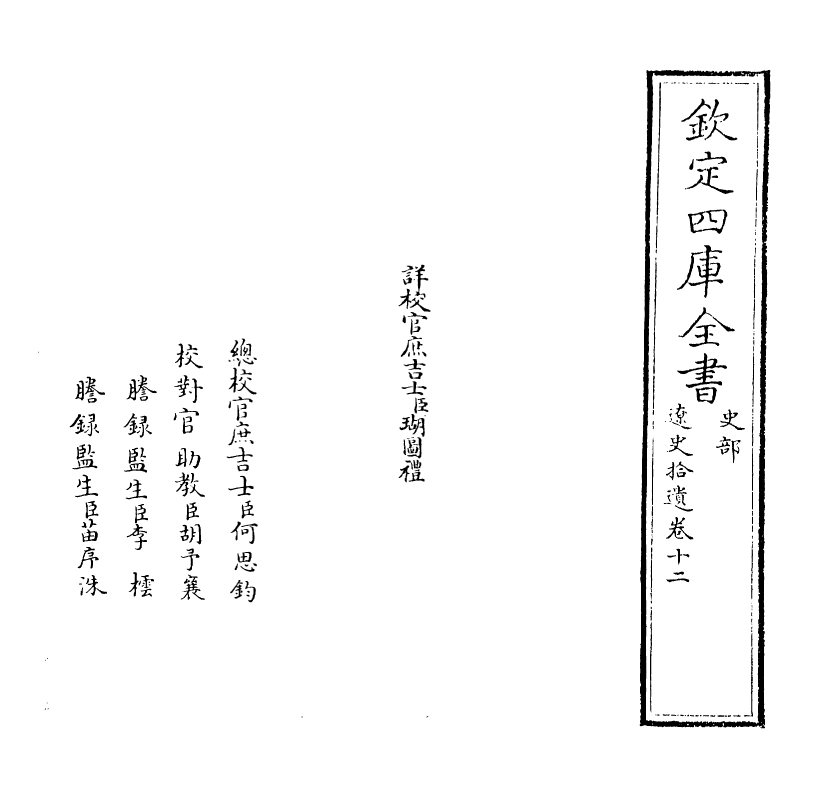 欽定四庫全書
史部
遼史拾遺卷十二
詳校官庶吉士臣瑚圖禮
總校官庶吉士臣何思鈞
校對官助教臣胡予襄
謄錄監生臣李 櫺
謄錄監生臣苗序洙